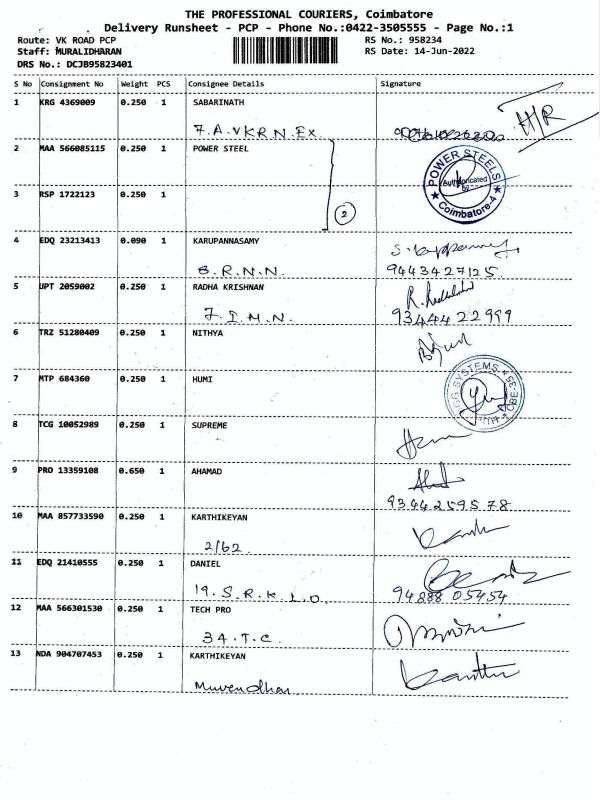 THE PROFESSIONAL COURIERS, Coimbatore
Delivery Runsheet - PCP - Phone No.:0422-3505555 - Page No.:1
Route: VK ROAD PCP RS No.: 958234
Staff: MURALIDHARAN RS Date: 14-Jun-2022
DRS No.: DCJB95823401
S No Consignment No Weight PCS Consignee Details Signature
1 KRG 4369009 0.250 1 SABARINATH
7.A.VKRN.EX H/R
2 MAA 566085115 0.250 1 POWER STEEL
POWER STEELS
Coimbatore-4
3 RSP 1722123 0.250 1
2
4 EDQ 23213413 0.090 1 KARUPANNASAMY
B.R.N.N. 9443427125
5 UPT 2059002 0.250 1 RADHA KRISHNAN
7.I.M.N. 9344422999
6 TRZ 51280409 0.250 1 NITHYA
7 MTP 684360 0.250 1 HUMI
GG SYSTEMS CBE-35
8 TCG 10052989 0.250 1 SUPREME
9 PRO 13359108 0.650 1 AHAMAD
9344259578
10 MAA 857733590 0.250 1 KARTHIKEYAN
2/62
11 EDQ 21410555 0.250 1 DANIEL
19.S.R.K.I.O 94888 05454
12 MAA 566301530 0.250 1 TECH PRO
34.T.C.
13 NDA 904707453 0.250 1 KARTHIKEYAN
Muvendhar